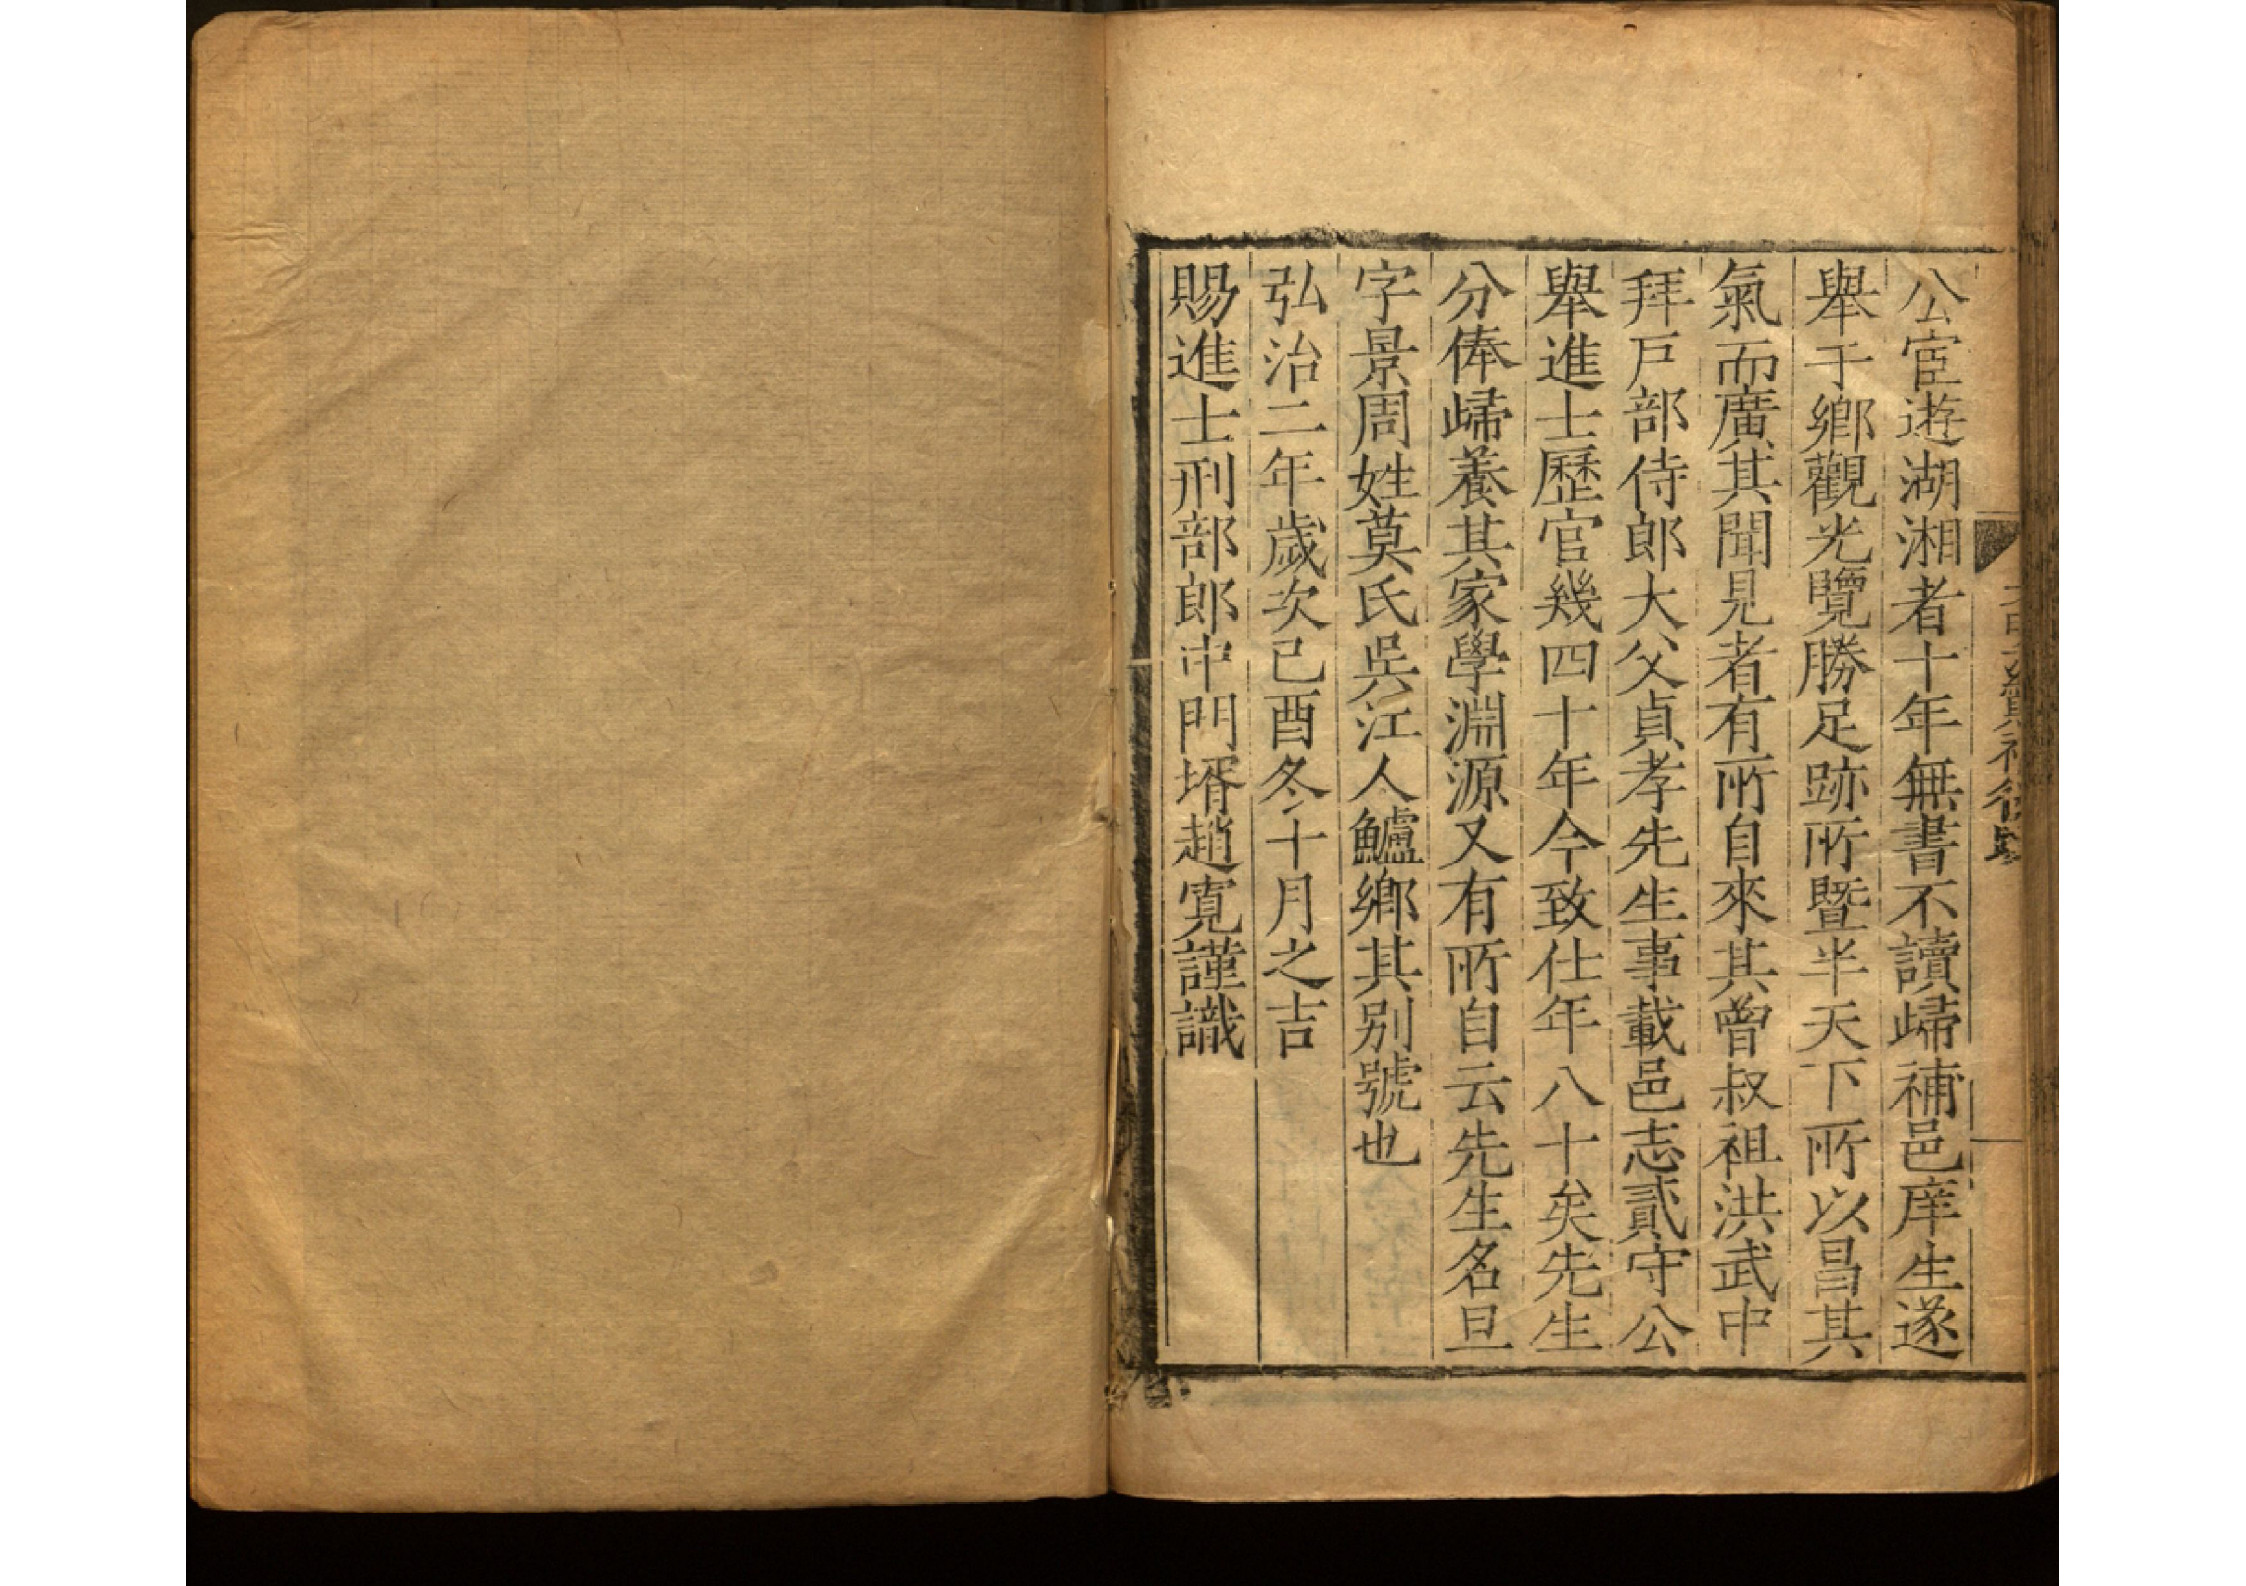 公宦遊湖湘者十年無書不讀歸補邑庠生遂
舉于鄉觀光覽勝足跡所暨半天下所以昌其
氣而廣其聞見者有所自來其曾叔祖洪武中
拜戶部侍郎大父貞孝先生事載邑志貳守公
舉進士歷官幾四十年今致仕年八十矣先生
分俸歸養其家學淵源又有所自云先生名旦
字景周姓莫氏吳江人鱸鄉其別號也
弘治二年歲次己酉冬十月之吉
賜進士刑部郎中門壻趙寬謹識